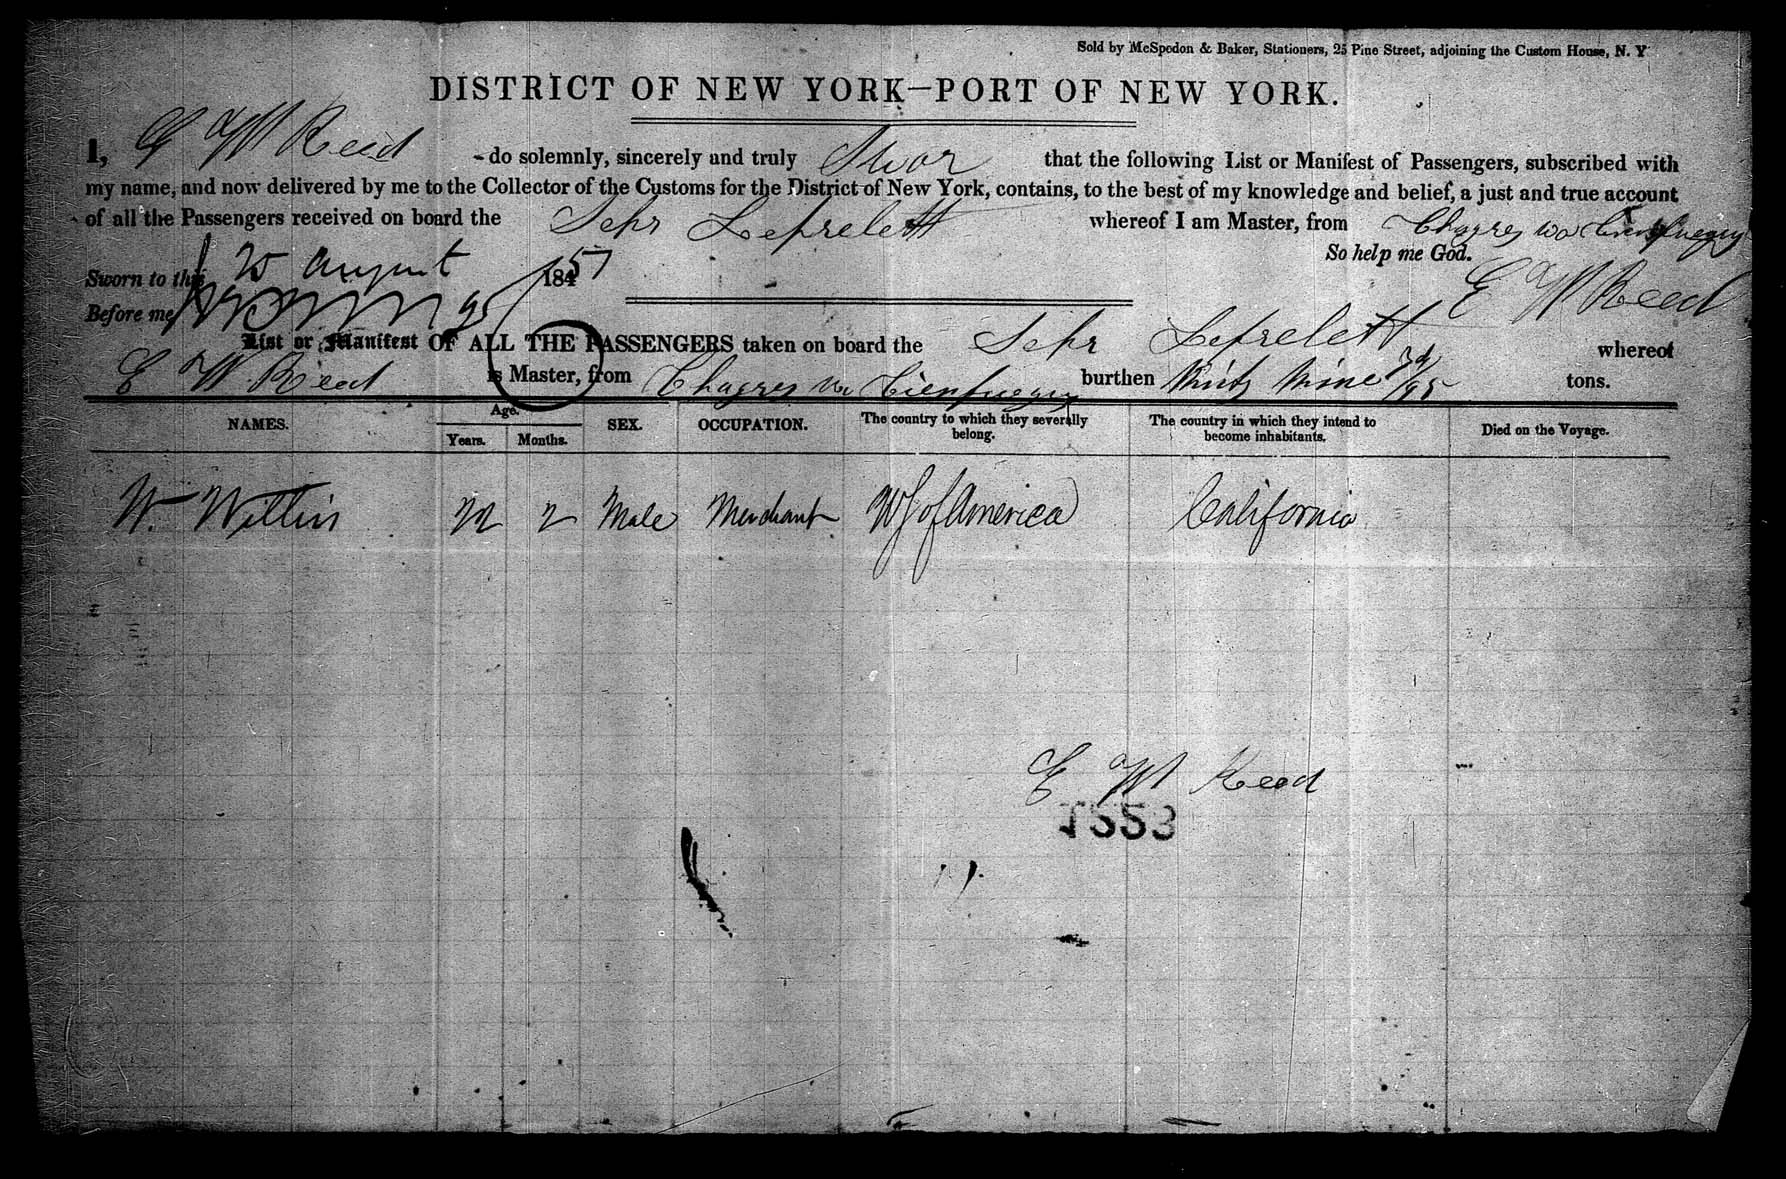 Sold by McSpedon & Baker, Stationers, 25 Pine Street, adjoining the Custom House, N. Y
DISTRICT OF NEW YORK—PORT OF NEW YORK.
I, E W Reed do solemnly, sincerely and truly Swar that the following List or Manifest of Passengers, subscribed with
my name, and now delivered by me to the Collector of the Customs for the District of New York, contains, to the best of my knowledge and belief, a just and true account
of all the Passengers received on board the Schr Leprelett whereof I am Master, from Chagres via Cienfuegus
So help me God.
Sworn to this 25 August 1851
E W Reed
Before me
List or Manifest OF ALL THE PASSENGERS taken on board the Schr Leprelett whereof
E W Reed is Master, from Chagres via Cienfuegus burthen Ninty Nine /95 tons.
NAMES. Age. Years. Months. SEX. OCCUPATION. The country to which they severally belong. The country in which they intend to become inhabitants. Died on the Voyage.
W. Wilkins 2 Male Merchant US of America California
E W Reed
1223